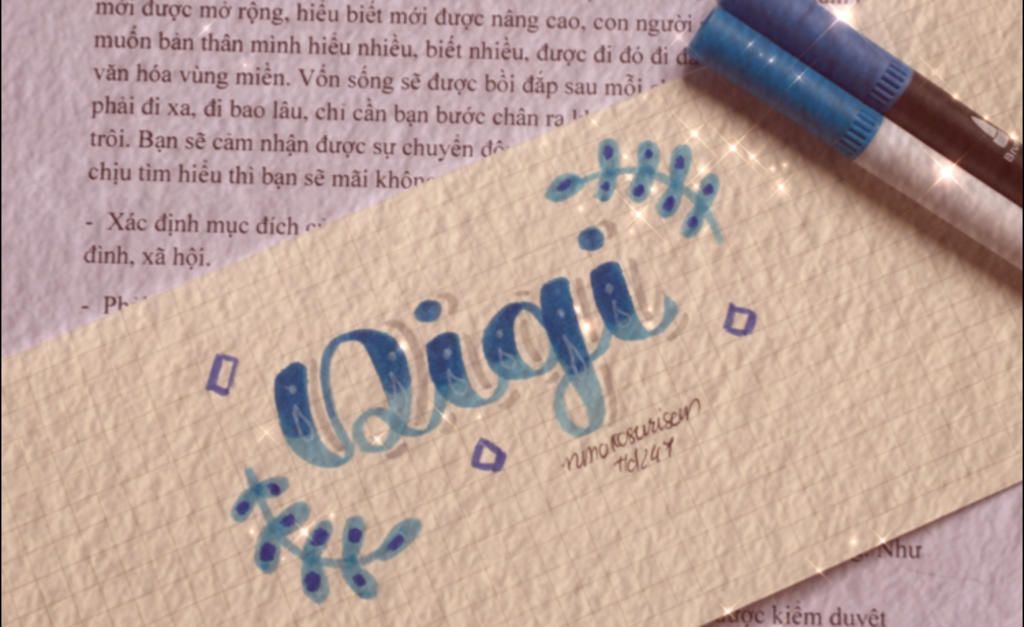 mới được mở rộng, hiểu biết mới được nâng cao, con người
muốn bản thân mình hiểu nhiều, biết nhiều, được đi đó đi
văn hóa vùng miền. Vốn sống sẽ được bồi đắp sau mỗi
phải đi xa, đi bao lâu, chỉ cần bạn bước chân ra
trôi. Bạn sẽ cảm nhận được sự chuyển
chịu tìm hiểu thì bạn sẽ mãi không
- Xác định mục đích
đình, xã hội.
Qigi
Như
được kiểm duyệt